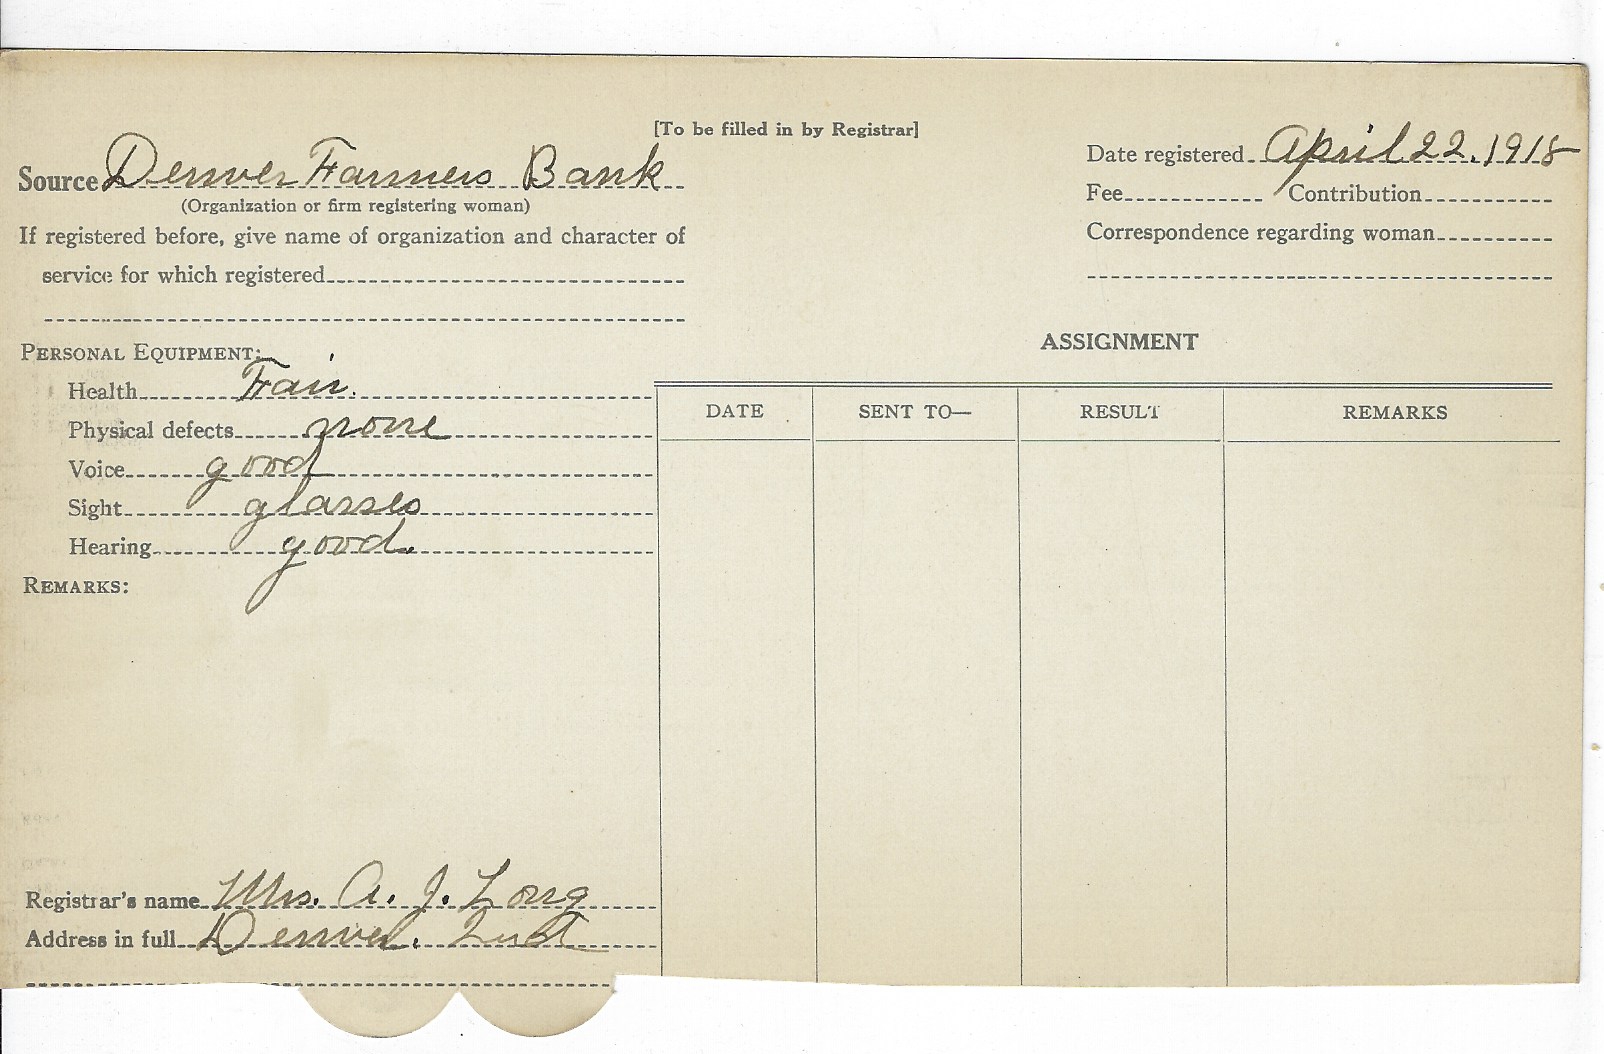 [To be filled in by Registrar]
Source Denver Farmers Bank
(Organization or firm registering woman)
If registered before, give name of organization and character of
service for which registered
Date registered April 22. 1918
Fee Contribution
Correspondence regarding woman
PERSONAL EQUIPMENT:
Health Fair.
Physical defects none
Voice good
Sight glasses
Hearing good.
REMARKS:
ASSIGNMENT
DATE SENT TO— RESULT REMARKS
Registrar's name Mrs. A. J. Long
Address in full Denver.